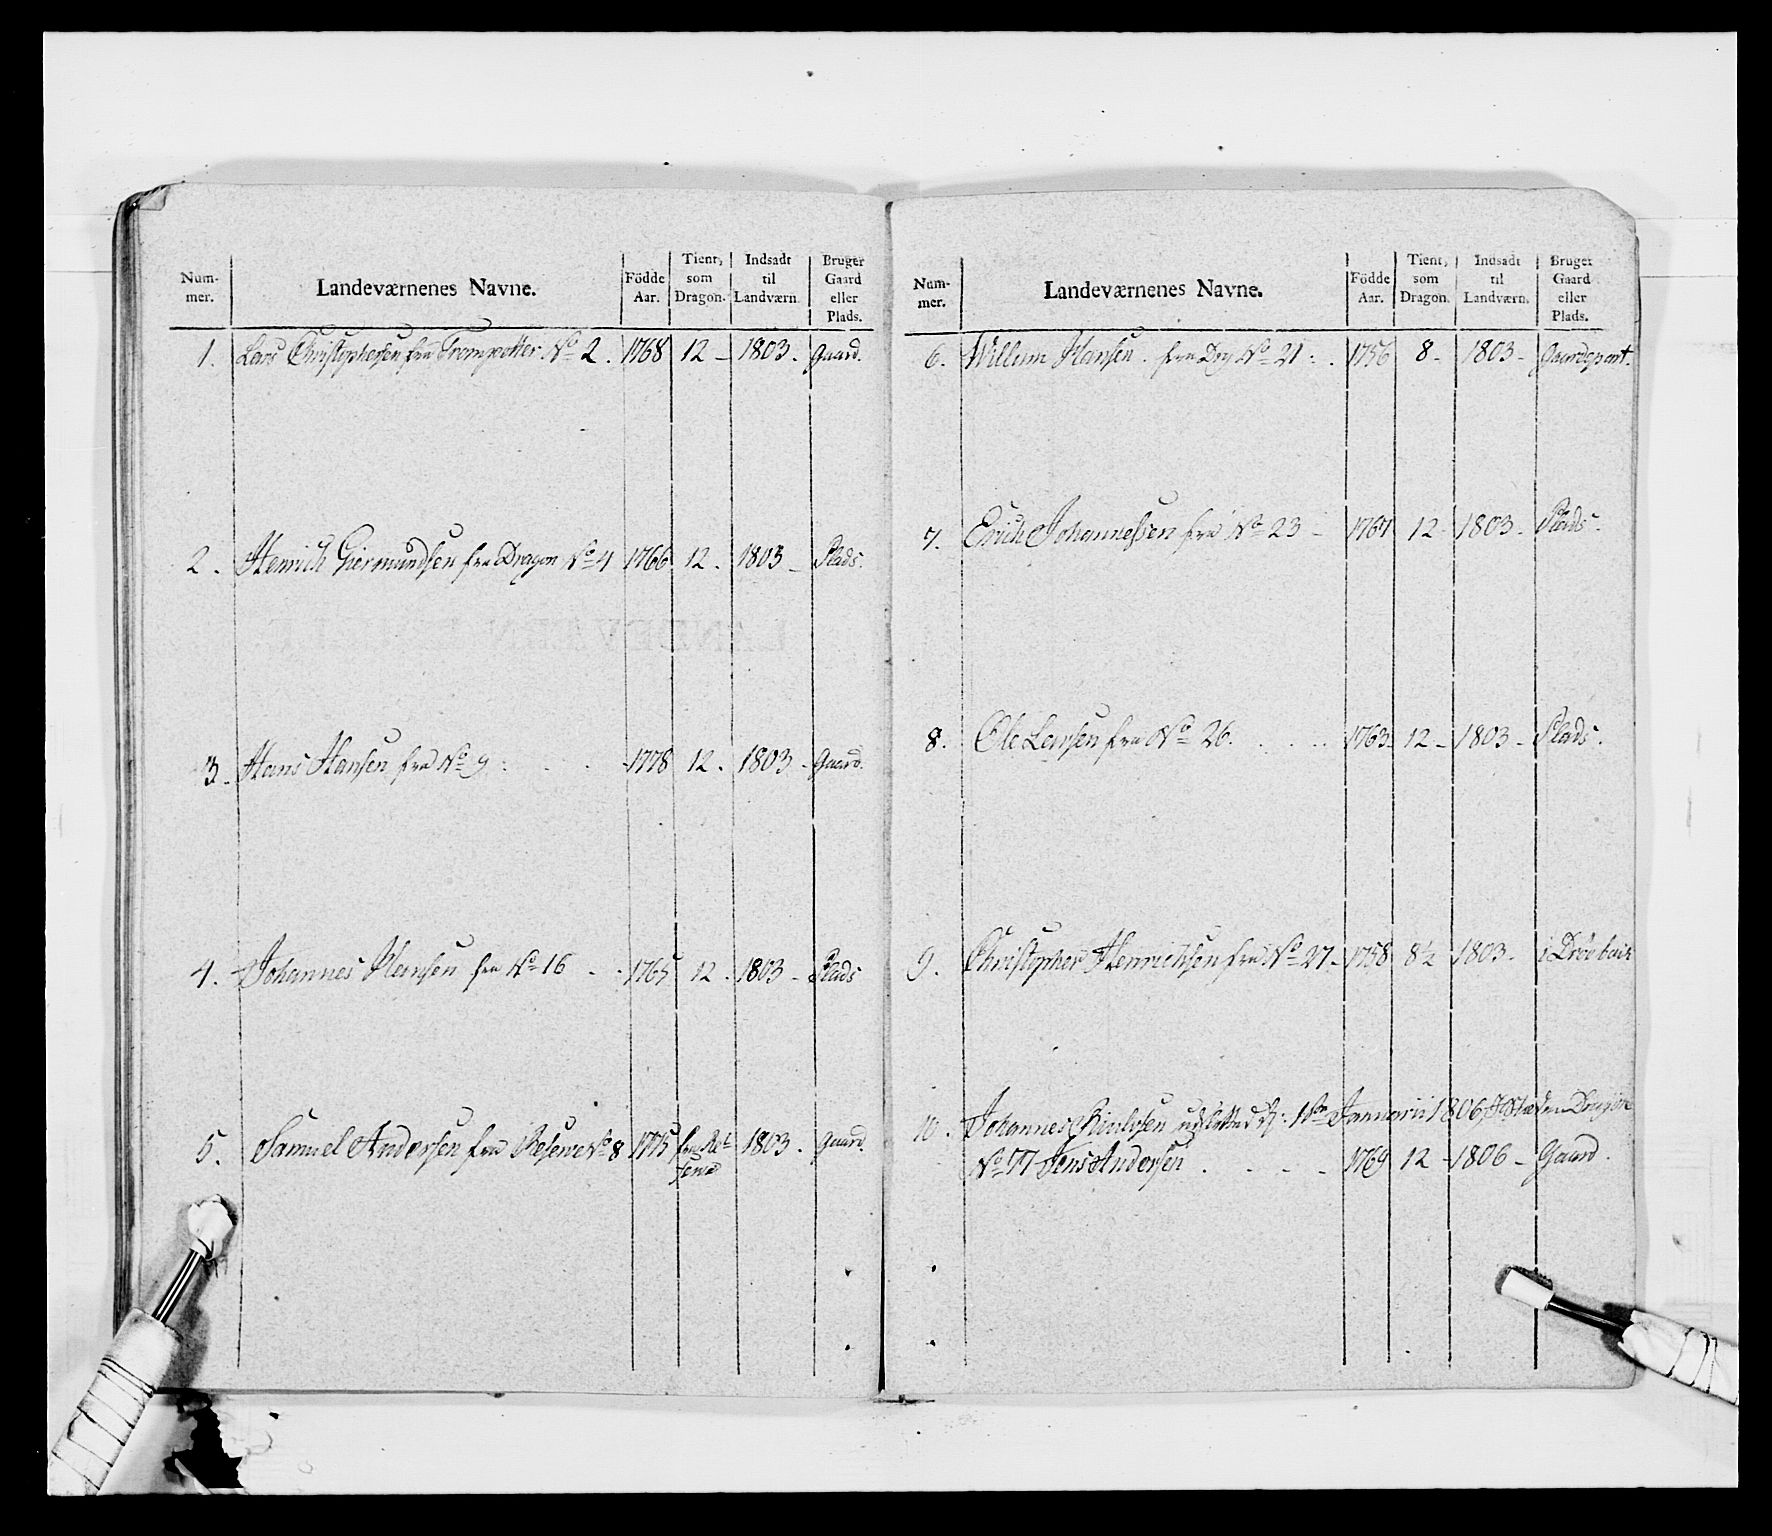 Num-mer. | Landeværnenes Navne. | Födde Aar. | Tient, som Dragon. | Indsadt til Landværn. | Bruger Gaard eller Plads.
1. Lars Christophersen fra Trompetter No 2. 1768 12 – 1803. Gaard.
2. Henrich Giermundsen fra Dragon No 4 1766 12. 1803 – Plads.
3. Hans Hansen fra No 9 1778 12. 1803 – Gaard.
4. Johannes Hansen fra No 16 1765 12. 1803 – Plads
5. Samuel Andersen fra Reserve No 8 1775 fra Re- 1803. Gaard.
serve
Num-mer. | Landeværnenes Navne. | Födde Aar. | Tient, som Dragon. | Indsadt til Landværn. | Bruger Gaard eller Plads.
6. Willum Hansen. fra Drg No 21. 1756 8 – 1803 – Gaardepart.
7. Erich Johannessen fra No 23 – 1767 12 – 1803 – Plads.
8. Ole Larsen fra No 26. 1763 – 12 – 1803 – Plads.
9. Christopher Henrichsen fra No 27 – 1758 8½ – 1803 – i Drøebach
10. Johannes udslettet d: 1ste Januarii 1806, I Stæden Dragon
No 77 Jens Andersen 1769 12 – 1806 – Gaard.